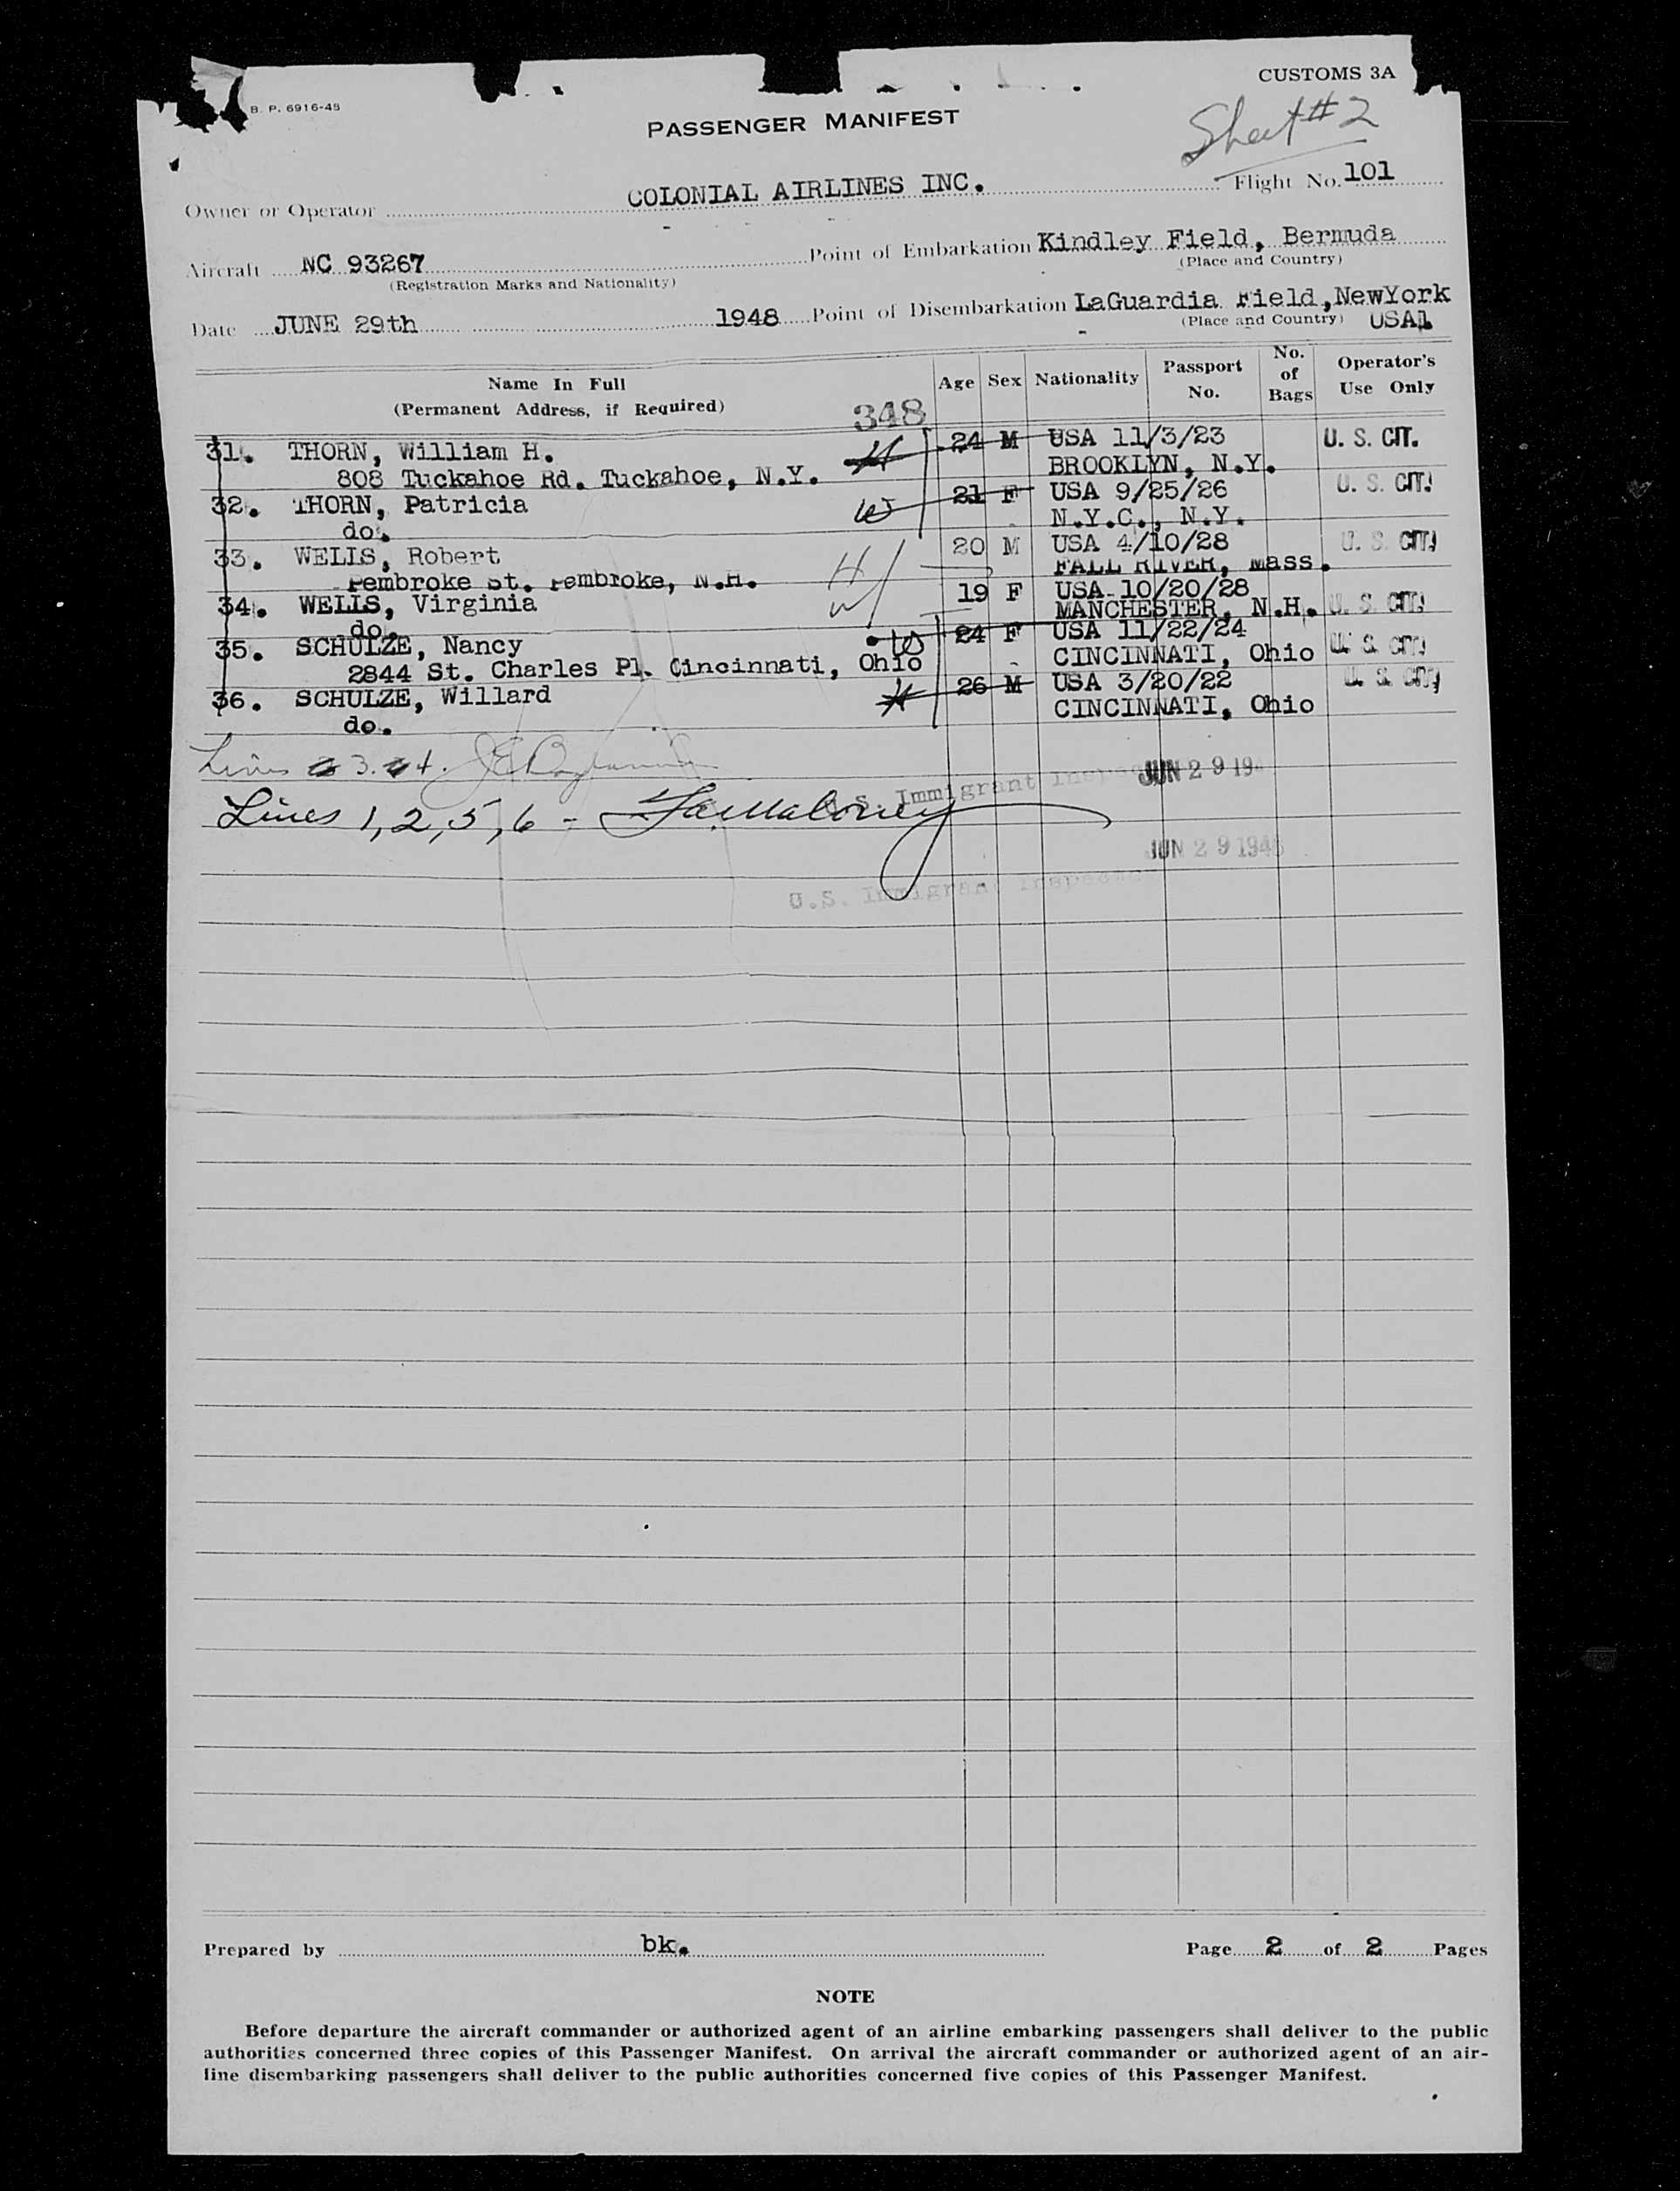 CUSTOMS 3A
B. P. 6916-48
PASSENGER MANIFEST
Sheet #2
Owner or Operator COLONIAL AIRLINES INC. Flight No. 101
Aircraft NC 93267 Point of Embarkation Kindley Field, Bermuda
(Registration Marks and Nationality) (Place and Country)
Date JUNE 29th 1948 Point of Disembarkation LaGuardia Field, NewYork
(Place and Country) USA
Name In Full Age Sex Nationality Passport No. No. of Bags Operator's Use Only
(Permanent Address, if Required)
348
31. THORN, William H. H 24 M USA 11/3/23 U. S. CIT.
808 Tuckahoe Rd. Tuckahoe, N.Y. BROOKLYN, N.Y.
32. THORN, Patricia W 21 F USA 9/25/26 U. S. CIT.
do. N.Y.C., N.Y.
33. WELLS, Robert H 20 M USA 4/10/28 U. S. CIT.
Pembroke St. Pembroke, N.H. FALL RIVER, Mass.
34. WELLS, Virginia W 19 F USA 10/20/28 U. S. CIT.
do. MANCHESTER, N.H.
35. SCHULZE, Nancy W 24 F USA 11/22/24 U. S. CIT.
2844 St. Charles Pl. Cincinnati, Ohio CINCINNATI, Ohio
36. SCHULZE, Willard H 26 M USA 3/20/22 U. S. CIT.
do. CINCINNATI, Ohio
Lines 3. 4.
U.S. Immigrant Inspector JUN 29 194
Lines 1, 2, 5, 6 -
JUN 29 1948
U.S. Immigrant Inspector
Prepared by bk. Page 2 of 2 Pages
NOTE
Before departure the aircraft commander or authorized agent of an airline embarking passengers shall deliver to the public
authorities concerned three copies of this Passenger Manifest. On arrival the aircraft commander or authorized agent of an air-
line disembarking passengers shall deliver to the public authorities concerned five copies of this Passenger Manifest.